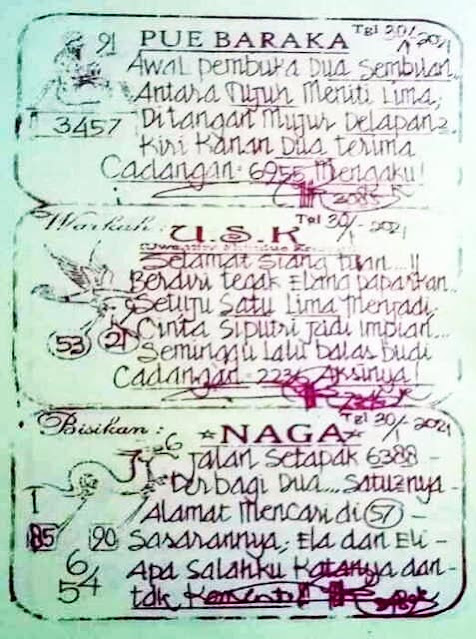 91 PUE BARAKA Tgl 30/1-2021
Awal pembuka Dua Sembilan
Antara Tujuh Meniti Lima,
3457 Ditangan Mujur Delapan2
Kiri Kanan Dua terima
Cadangan: 6955 Mengaku!
Warkah: U.S.K Tgl 30/1-2021
Selamat Siang tuan...!!
Berdiri tegak Elang paparkan..
Setuju Satu Lima Menjadi
53 21 Cinta Siputri jadi impian...
Seminggu lalu balas budi
Cadangan: 2236 Aksinya!
Bisikan: NAGA Tgl 30/1-2021
6 Jalan Setapak 6388 -
Berbagi Dua... Satuznya -
1 Alamat Mencari di 57 -
85 90 Sasarannya; Ela dan Eli -
6/54 Apa Salahku Katanya dan-
tak Komentar!